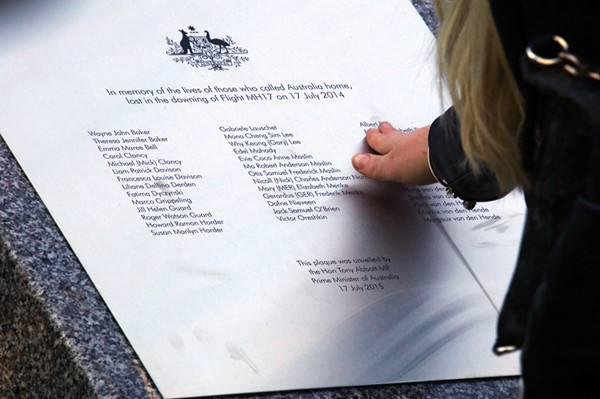 In memory of the lives of those who called Australia home,
lost in the downing of Flight MH17 on 17 July 2014
Wayne John Baker
Theresa Jennifer Baker
Emma Maree Bell
Carol Clancy
Michael (Mick) Clancy
Liam Patrick Davison
Francesca Louise Davison
Liliane Derden
Fatima Dyczynski
Marco Grippeling
Jill Helen Guard
Roger Watson Guard
Howard Ramon Horder
Susan Marilyn Horder
Gabriele Lauschet
Mona Cheng Sim Lee
Why Keong (Gary) Lee
Edel Mahady
Evie Coco Anne Maslin
Mo Robert Anderson Maslin
Otis Samuel Frederick Maslin
Nicoll (Nick) Charles Anderson
Mary (MER) Elizabeth Menke
Gerardus (GER) Frederick Menke
Dafne Nieveen
Jack Samuel O'Brien
Victor Oreshkin
van den Hende
This plaque was unveiled by
the Hon Tony Abbott MP
Prime Minister of Australia
17 July 2015